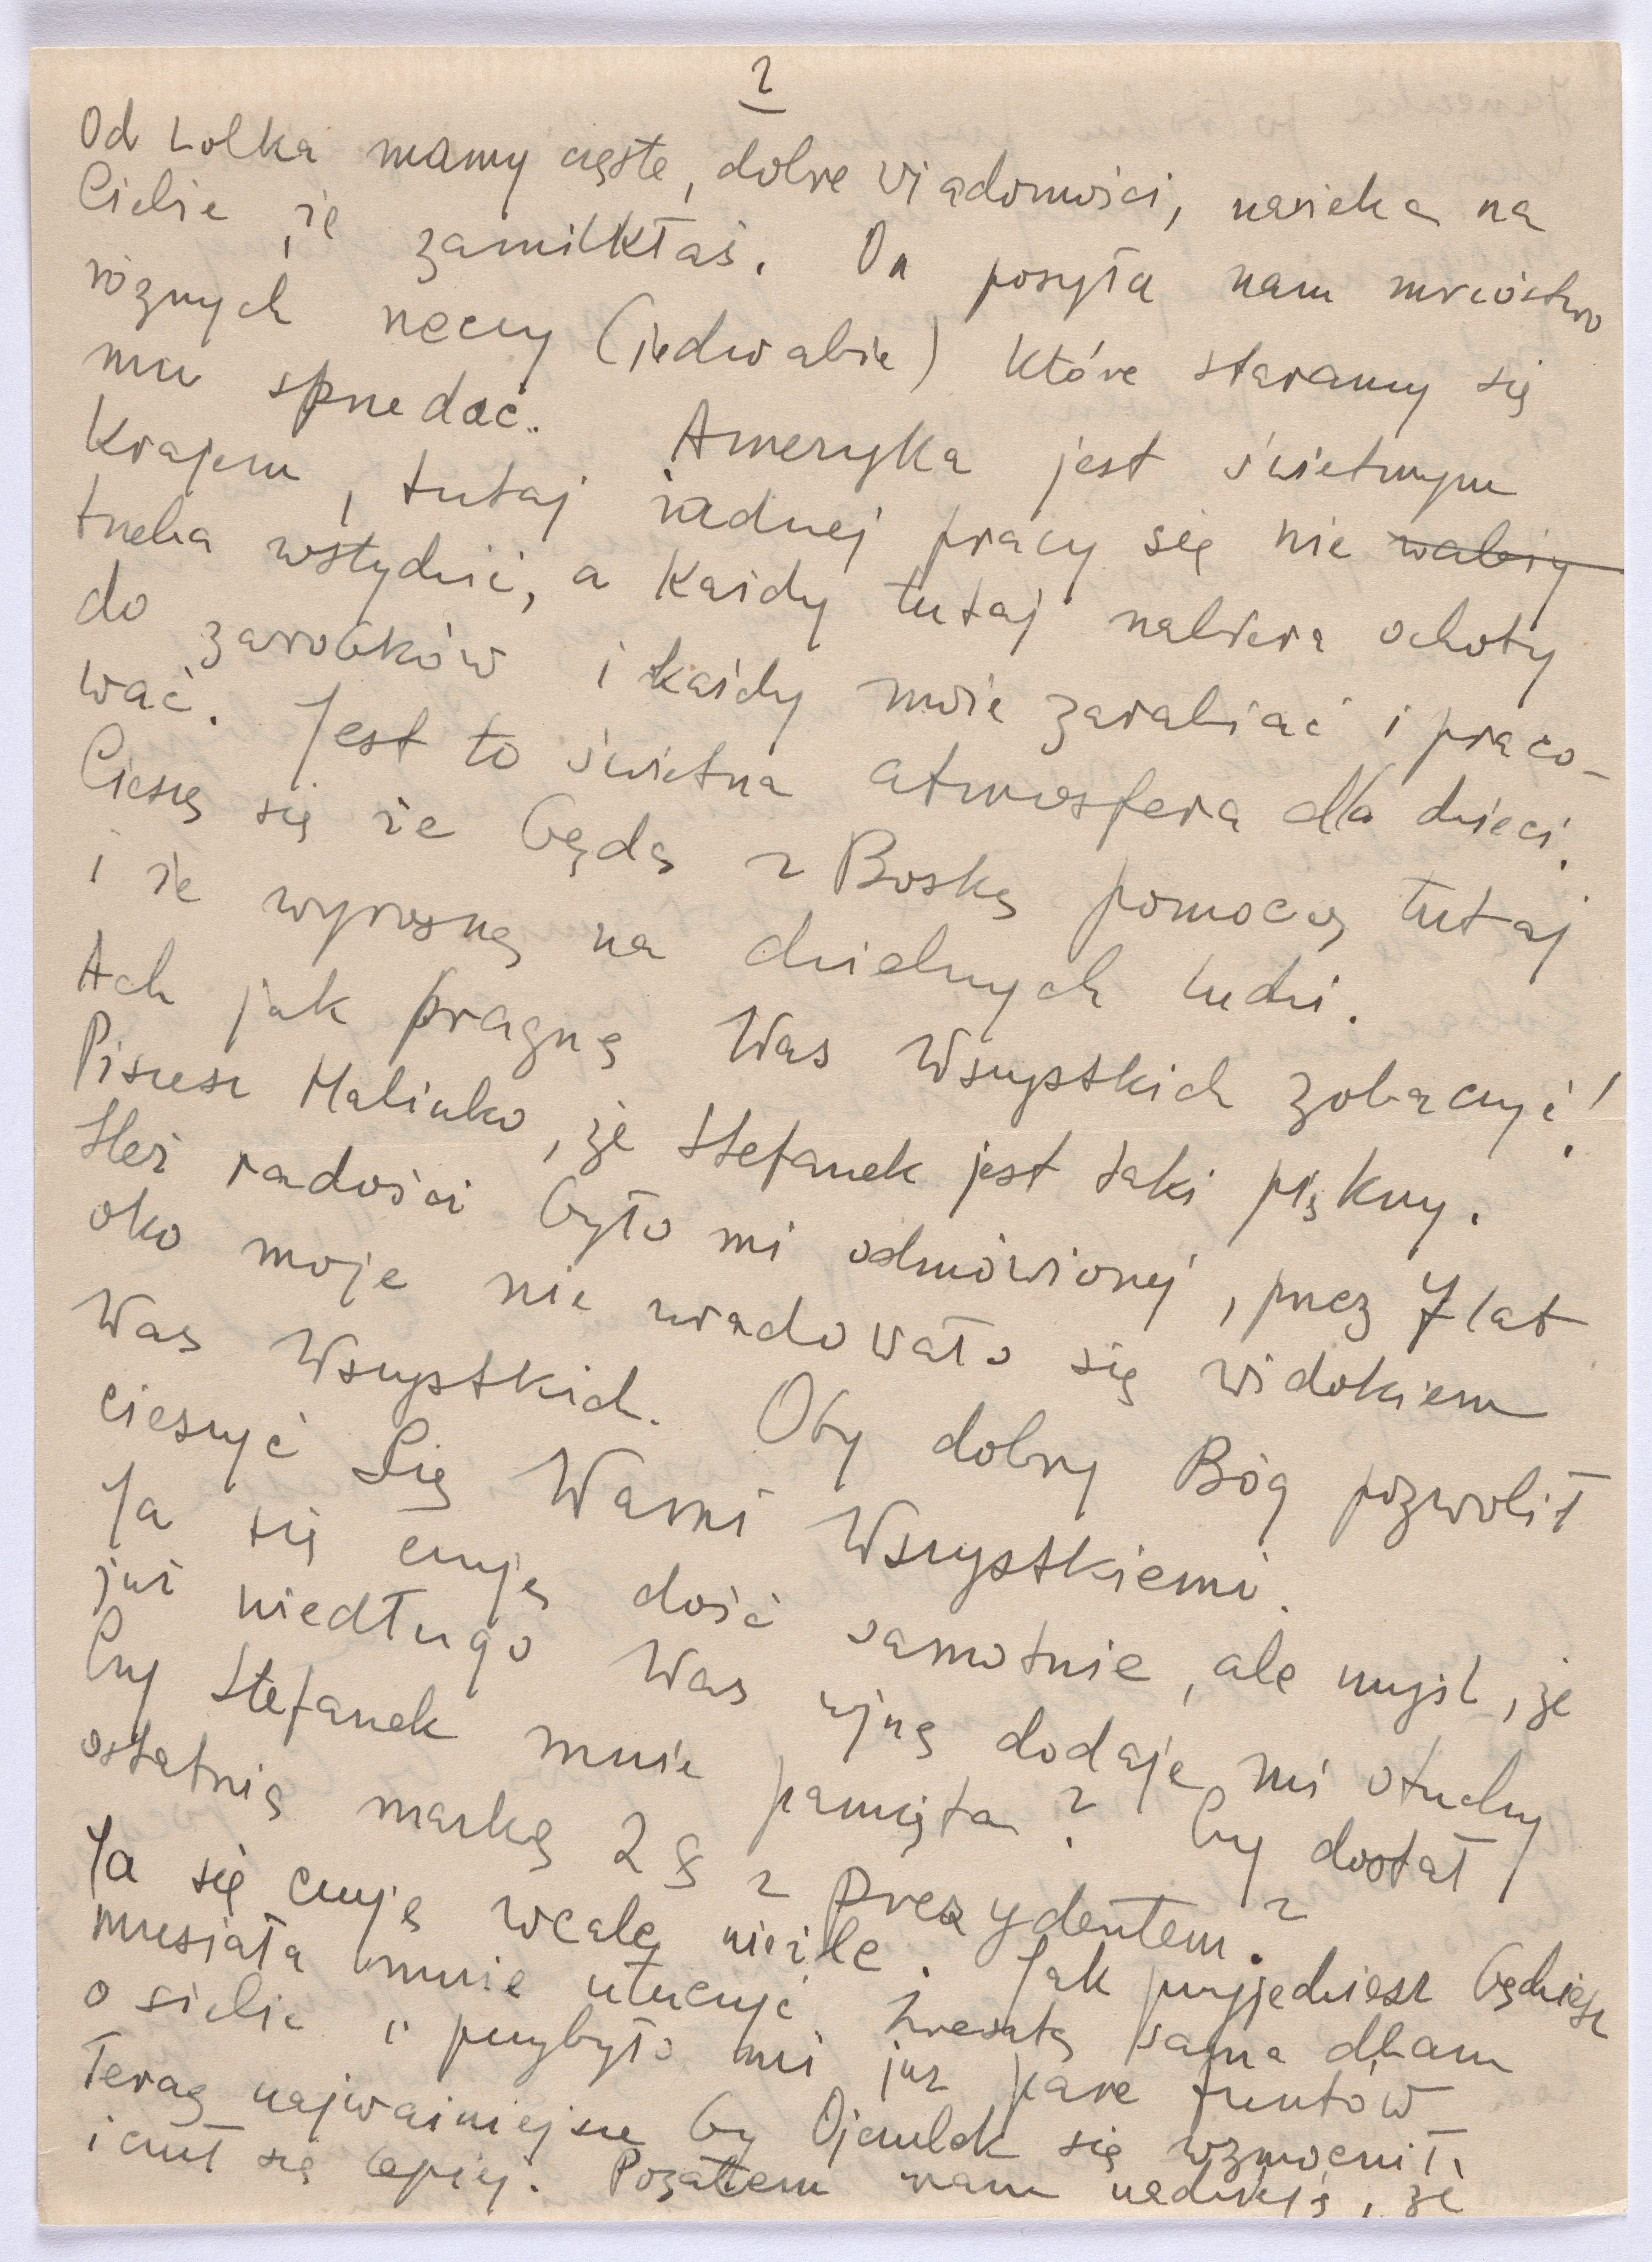 2
Od Lolka mamy częste, dobre wiadomości, narzeka na
Ciebie, że zamilkłaś. On posyła nam mnóstwo
różnych rzeczy (jedwabie) które staramy się
mu sprzedać. Ameryka jest świetnym
Krajem, tutaj żadnej pracy się nie
trzeba wstydzić, a każdy tutaj nabiera ochoty
do zarobków i każdy może zarabiać i praco-
wać. Jest to świetna atmosfera dla dzieci.
Cieszę się że będą z Boską pomocą tutaj
i że wyrosną na dzielnych ludzi.
Ach jak pragnę Was Wszystkich zobaczyć!
Piszesz Halinko, że Stefanek jest taki piękny.
Ileż radości było mi odmówionej, przez 7 lat
oko moje nie uradowało się widokiem
Was Wszystkich. Oby dobry Bóg pozwolił
cieszyć Się Wami Wszystkiemi.
Ja się czuję dość samotnie, ale myśl, że
już niedługo Was ujrzę dodaje mi otuchy
Czy Stefanek mnie pamięta? Czy dostał
ostatnią markę 2 $ z prezydentem?
Ja się czuję wcale nieźle. Jak przyjedziesz będziesz
musiała mnie utuczyć. Zresztą sama dbam
o siebie i przybyło mi już parę funtów.
Teraz najważniejsze by Ojczulek się wzmocnił
i czuł się lepiej. Pozatem mam nadzieję, że